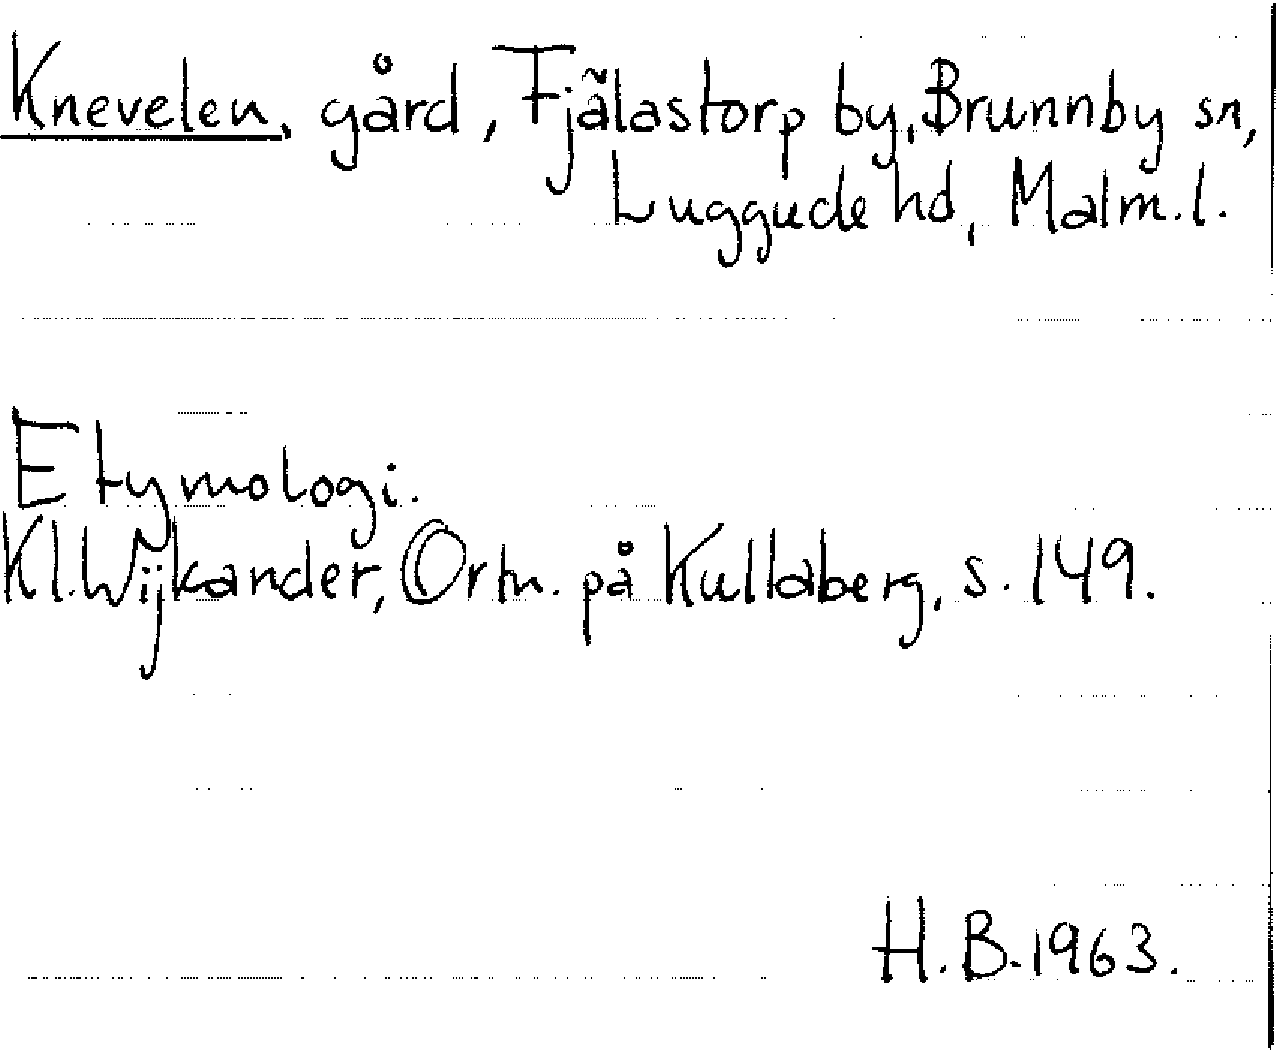 Knevelen, gård, Fjälastorp by, Brunnby sn,
Luggude hd, Malm.l.
Etymologi.
Kl. Wijkander, Ortn. på Kullaberg, s. 149.
H.B. 1963.